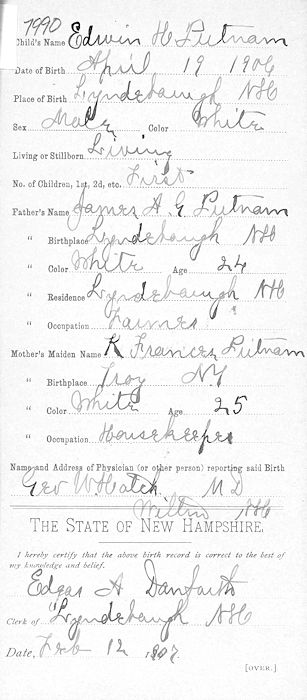 7990
Child's Name Edwin H Putnam
Date of Birth April 19 1906
Place of Birth Lyndebaugh NH
Sex Male Color White
Living or Stillborn Living
No. of Children, 1st, 2d, etc. First
Father's Name James A. G. Putnam
" Birthplace Lyndebaugh NH
" Color White Age 24
" Residence Lyndebaugh NH
" Occupation Farmer
Mother's Maiden Name K Frances Putnam
" Birthplace Troy NY
" Color White Age 25
" Occupation Housekeeper
Name and Address of Physician (or other person) reporting said Birth
Geo W Hatch M D
Wilton NH
THE STATE OF NEW HAMPSHIRE.
I hereby certify that the above birth record is correct to the best of
my knowledge and belief.
Edgar A Danforth
Clerk of Lyndebaugh NH
Date, Feb 12 1907
[OVER.]